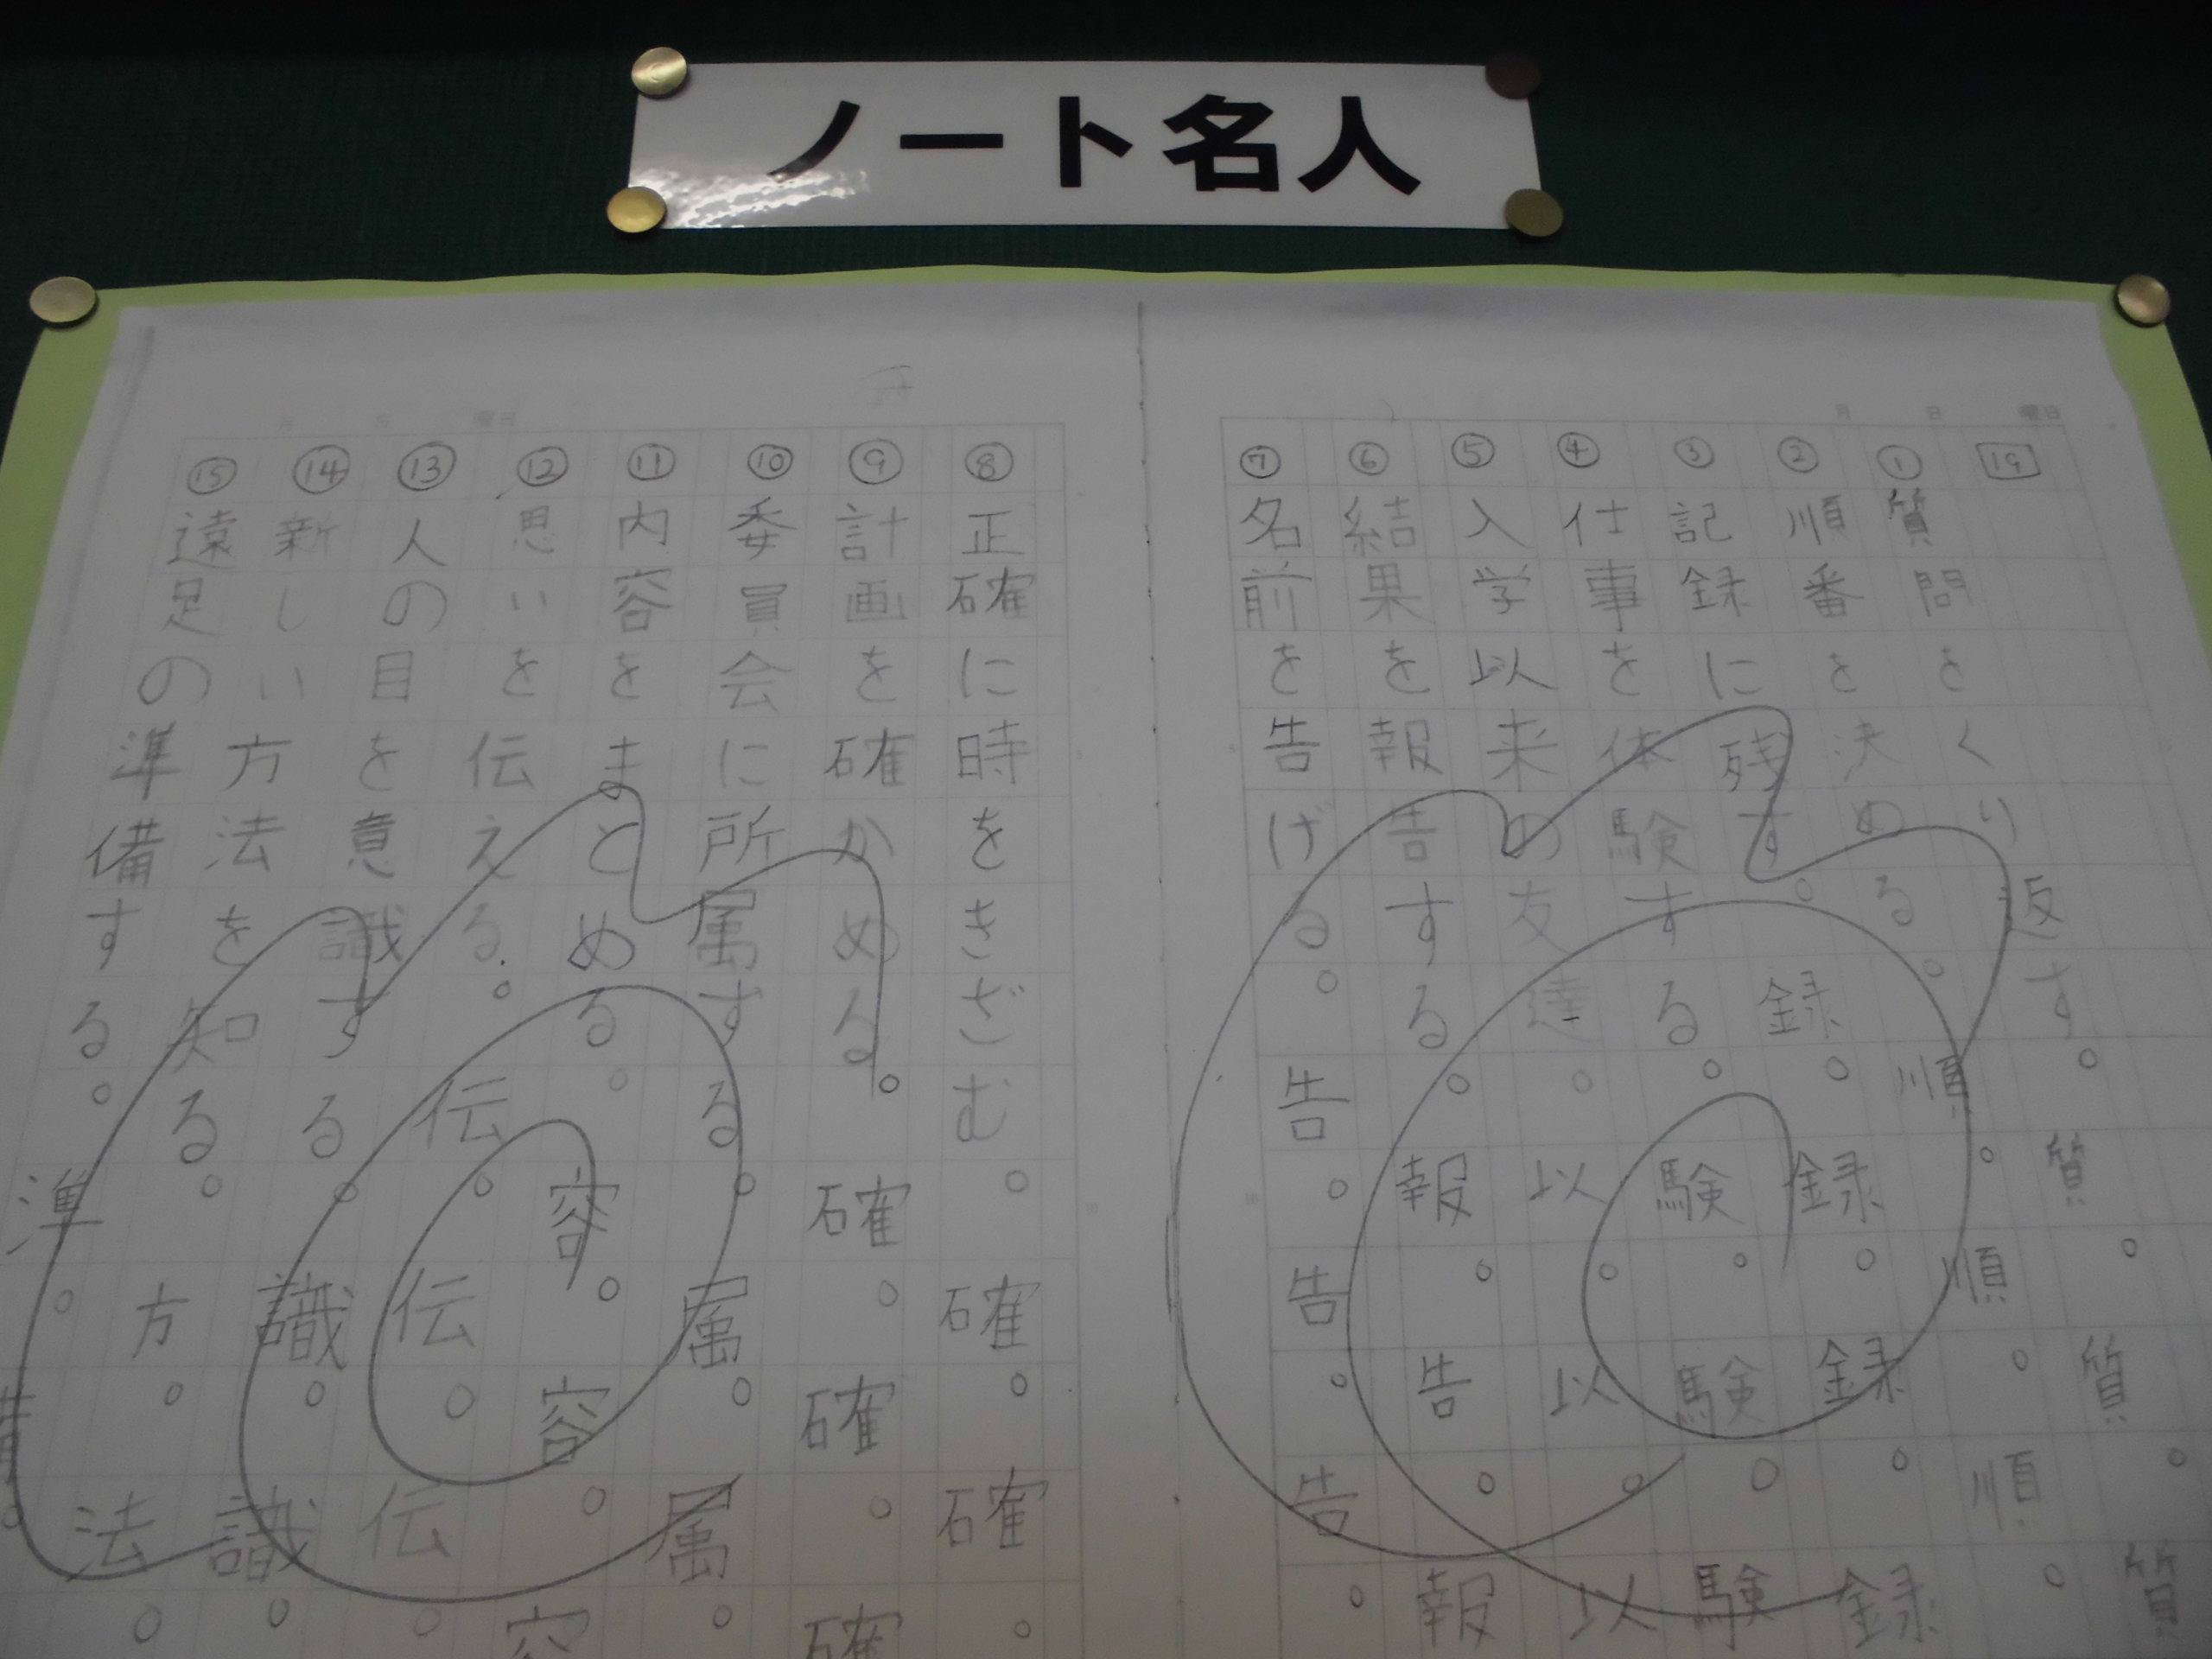 ノート名人
月 日 曜日
19
①質問をくり返す。質。質。質
②順番を決める。順。順。順。
③記録に残す。録。録。録。録
④仕事を体験する。験。験。験
⑤入学以来の友達。以。以。以
⑥結果を報告する。報。告。報
⑦名前を告げる。告。告。告。
月 日 曜日
⑧正確に時をきざむ。確。確。
⑨計画を確かめる。確。確。確
⑩委員会に所属する。属。属。
⑪内容をまとめる。容。容。容
⑫思いを伝える。伝。伝。伝。
⑬人の目を意識する。識。識。
⑭新しい方法を知る。方。法。
⑮遠足の準備する。準。